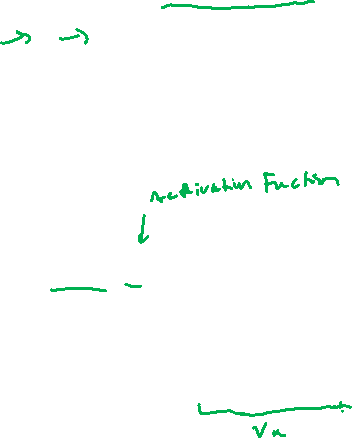 Activation Function
Vn